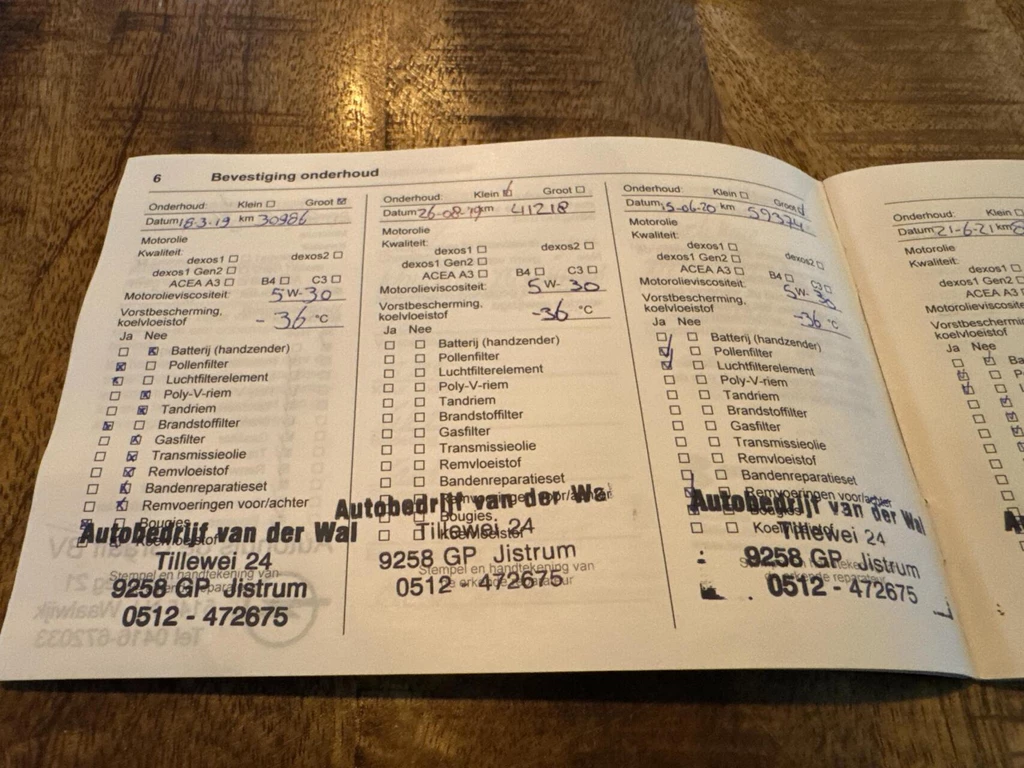 6 Bevestiging onderhoud
Onderhoud: Klein Groot
Datum 18-3-19 km 30986
Motorolie
Kwaliteit:
dexos1 dexos2
dexos1 Gen2
ACEA A3 B4 C3
Motorolieviscositeit: 5W-30
Vorstbescherming,
koelvloeistof -36 °C
Ja Nee
Batterij (handzender)
Pollenfilter
Luchtfilterelement
Poly-V-riem
Tandriem
Brandstoffilter
Gasfilter
Transmissieolie
Remvloeistof
Bandenreparatieset
Remvoeringen voor/achter
Bougies
Koelvloeistof
Autobedrijf van der Wal
Tillewei 24
Stempel en handtekening van
9258 GP Jistrum
0512 - 472675
Onderhoud: Klein Groot
Datum 26-08-19 km 41218
Motorolie
Kwaliteit:
dexos1 dexos2
dexos1 Gen2
ACEA A3 B4 C3
Motorolieviscositeit: 5W-30
Vorstbescherming,
koelvloeistof -36 °C
Ja Nee
Batterij (handzender)
Pollenfilter
Luchtfilterelement
Poly-V-riem
Tandriem
Brandstoffilter
Gasfilter
Transmissieolie
Remvloeistof
Bandenreparatieset
Remvoeringen voor/achter
Autobedrijf van der Wal
Bougies
Koelvloeistof
Tillewei 24
9258 GP Jistrum
Stempel en handtekening van
0512 - 472675
Onderhoud: Klein Groot
Datum 15-06-20 km 59374
Motorolie
Kwaliteit:
dexos1 dexos2
dexos1 Gen2
ACEA A3 B4 C3
Motorolieviscositeit: 5W-30
Vorstbescherming,
koelvloeistof -36 °C
Ja Nee
Batterij (handzender)
Pollenfilter
Luchtfilterelement
Poly-V-riem
Tandriem
Brandstoffilter
Gasfilter
Transmissieolie
Remvloeistof
Bandenreparatieset
Remvoeringen voor/achter
Autobedrijf van der Wal
Koelvloeistof
Tillewei 24
9258 GP Jistrum
0512 - 472675
Onderhoud: Klein
Datum 21-6-21 km
Motorolie
Kwaliteit:
dexos1
dexos1 Gen2
ACEA A3
Motorolieviscositeit
Vorstbeschermin
koelvloeistof
Ja Nee